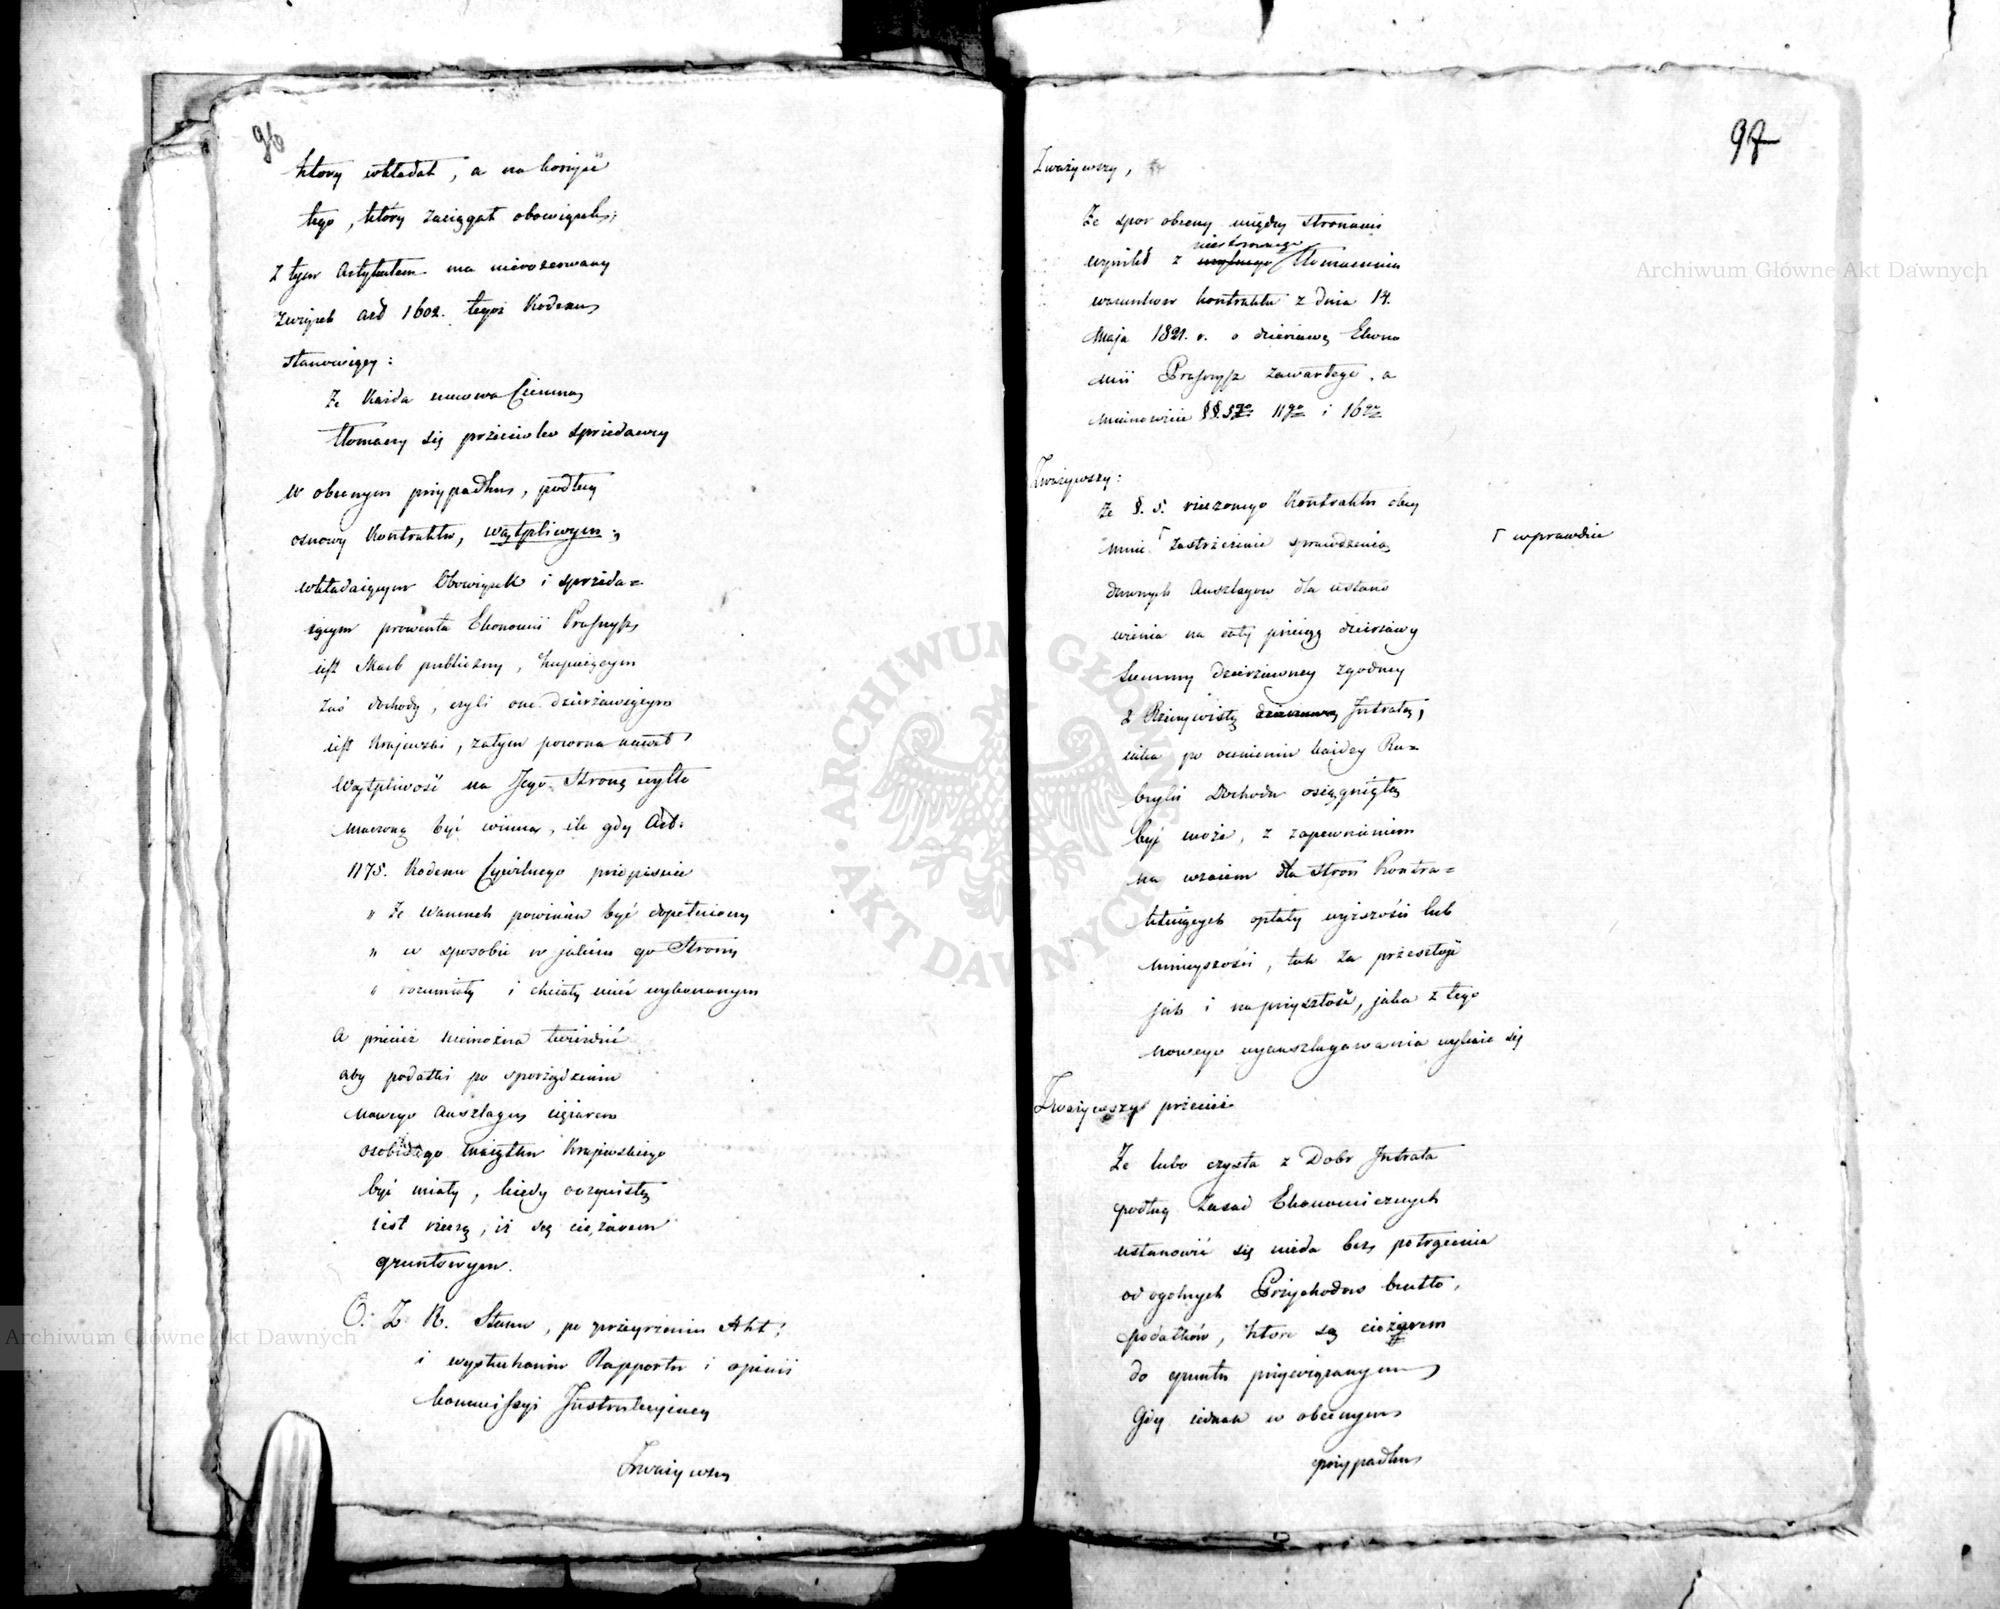 96
ktory wkładał, a na korzyść
tego, który zaciągał obowiązek;
Z tym Artykułem ma nierozerwany
związek Art 1602. tegoż Kodexu
stanowiący:
Że Każda umowa Ciemna
tłomaczy się przeciwko sprzedawcy
W obecnym przypadku, podług
osnowy Kontraktu, wątpliwym;
wkładaiącym Obowiązek i sprzeda=
iącym prowenta Ekonomii Prasnysz
iest Skarb publiczny, kupuiącym
zaś dochody, czyli one dzierżawiącym
iest Krajewski, zatym pozorna nawet
Wątpliwość na Jego Stronę wytło
maczoną być winna, ile gdy Art:
1175. Kodexu Cywilnego przepisuie
" Że Warunek powinien być dopełniony
" w sposobie w jakim go Strony
" rozumiały i chciały mieć wykonanym
A przeież niemożna twierdzić
aby podatki po sporządzeniu
Nowego Auszlagu ciężarem
osobistego maiątku Krajewskiego
być miały, kiedy oczywistą
iest rzeczą, iż są ciężarem
gruntowym.
O. Z. R. Stanu, po przeyrzeniu Akt:
i wysłuchaniu Rapportu i opinii
Kommissyi Instrukcyiney
Zważywszy
97
Zważywszy,
Że spor obecny między stronami
niestosownego
wynikł z tłomaczenia
warunkow kontraktu z dnia 14.
Maja 1821. r. o dzierżawę Ekono
mii Prasnysz zawartego, a
mianowicie §§. 5go 11go i 16go
Zważywszy:
Że §. 5. rzeczonego Kontraktu obey
muie ⌈ zastrzeżenie sprawdzenia
⌈ wprawdzie
dawnych Auszlagow dla ustano
wienia na cały przeciąg dzierżawy
Summy dzierżawney zgodney
z Rzeczywistą Intratą,
iaka po ocenieniu każdey Ru=
bryki Dochodu osiągniętą
być może, z zapewnieniem
na wzaiem dla Stron Kontra=
ktuiących opłaty wyższości lub
mnieyszości, tak za przeszłość
jak i na przyszłość, jaka z tego
nowego wyauszlagowania wykaże się
Zważywszy przecież
Że lubo czysta z Dobr Intrata
podług Zasad Ekonomicznych
ustanowić się nieda bez potrącenia
od ogolnych Przychodow brutto,
podatków, ktore są ciężarem
do gruntu przywiązanym
Gdy iednak w obecnym
przypadku
Archiwum Główne Akt Dawnych
Archiwum Główne Akt Dawnych
ARCHIWUM GŁÓWNE · AKT DAWNYCH ·